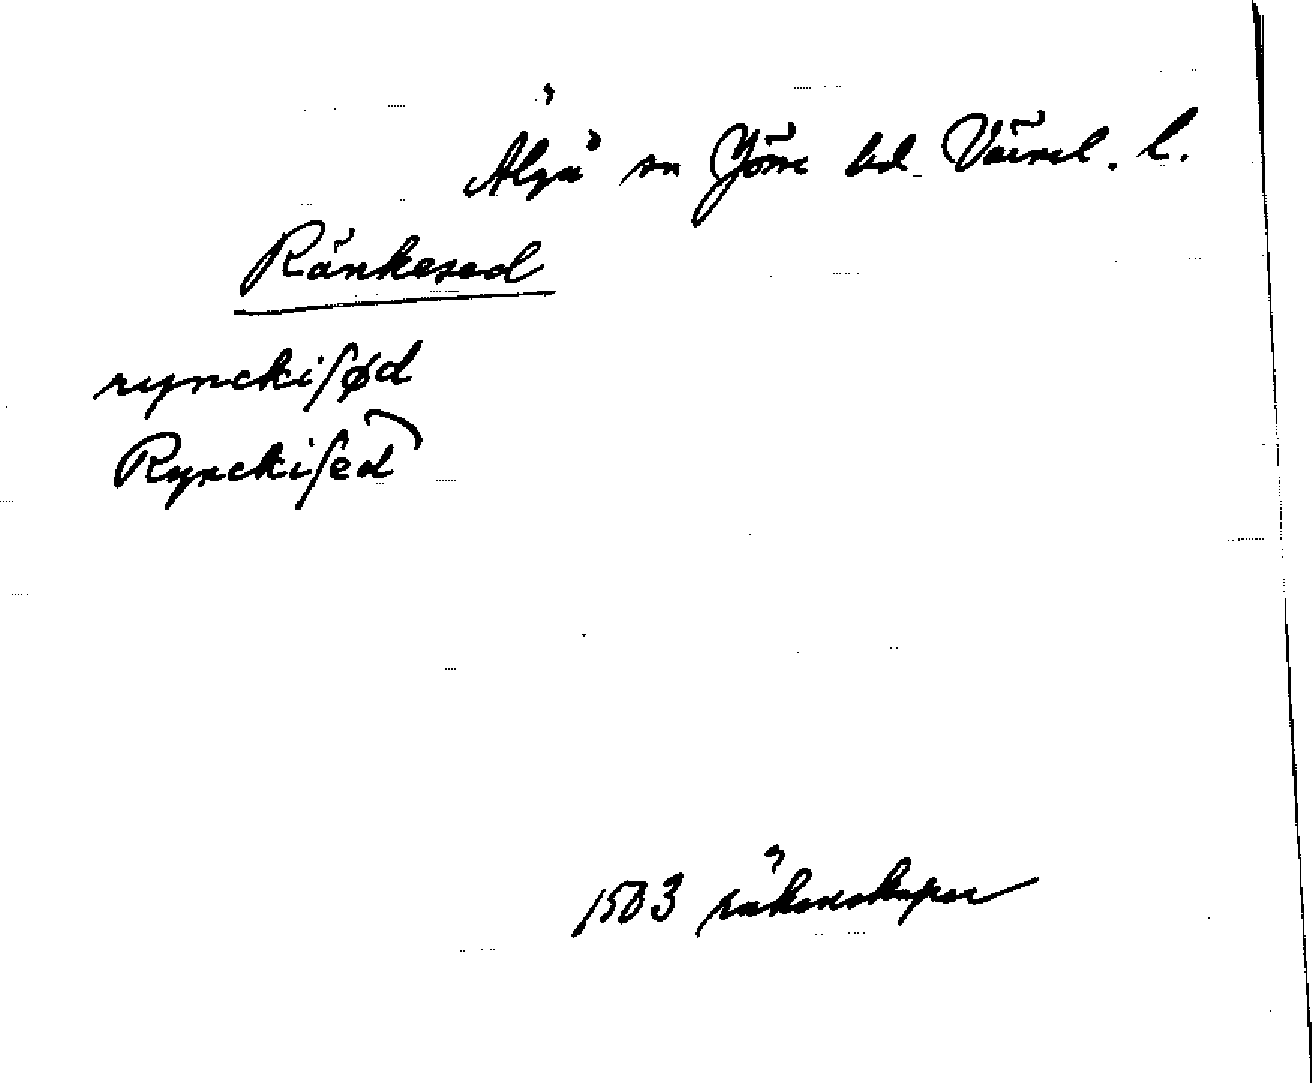 Älgå sn Jösse hd Värml. l.
Ränkesed
rynckiſød
Rynckiſed
1503 räkenskaper